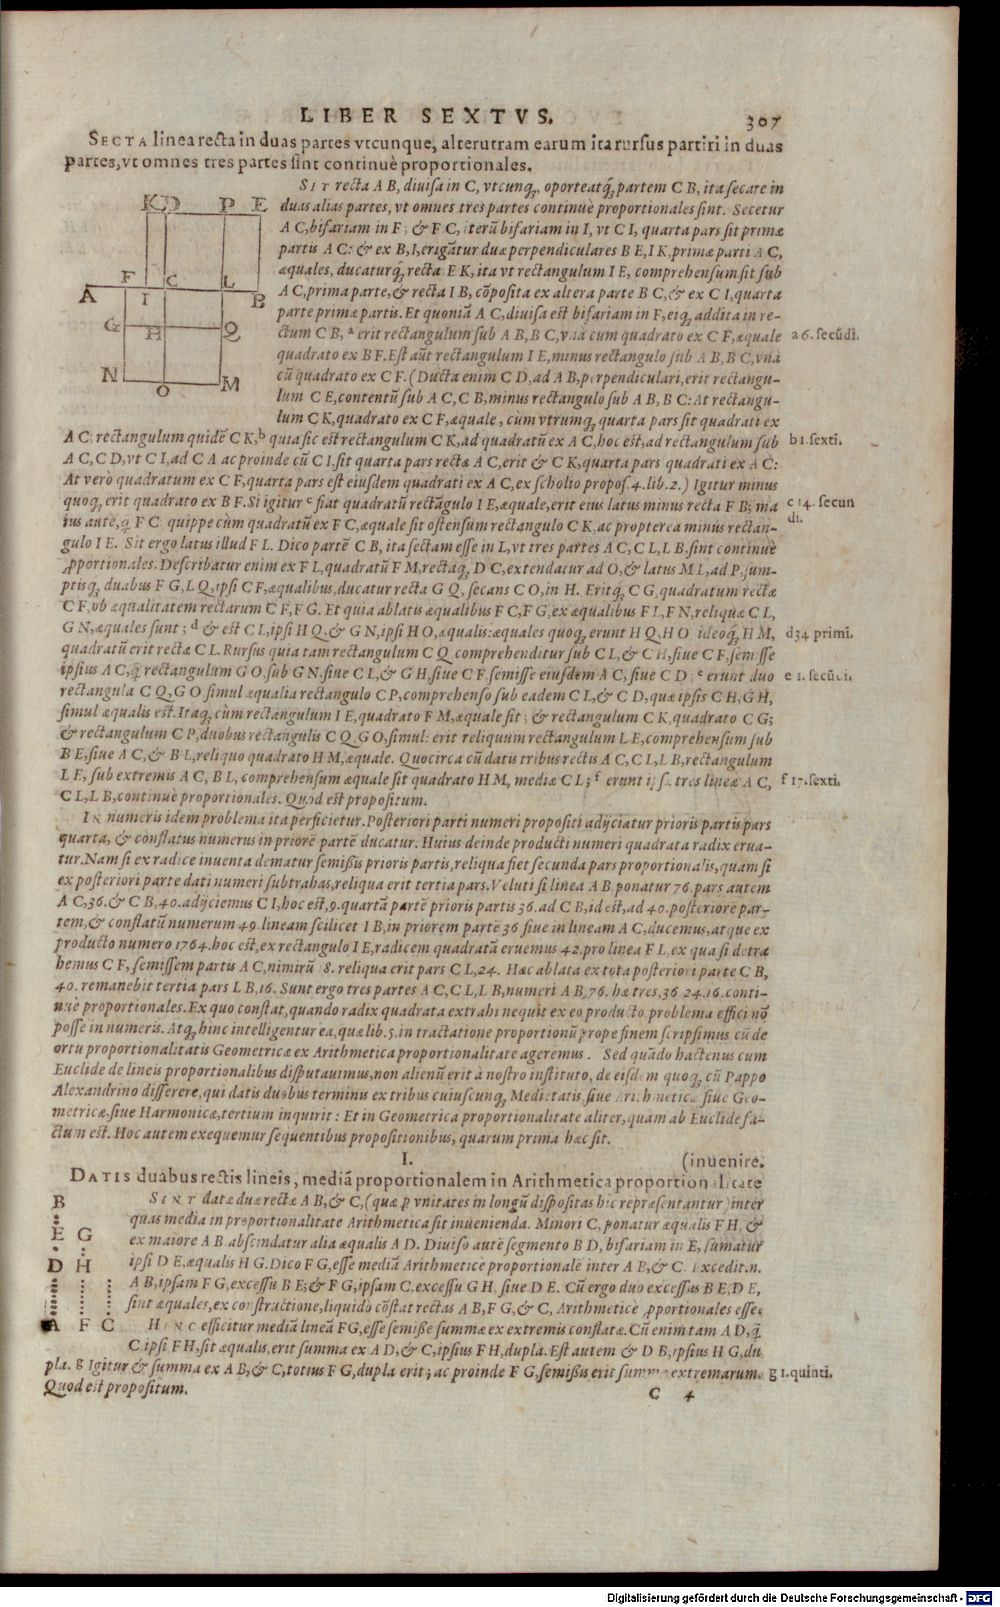 LIBER SEXTVS. 307
SECTA linea recta in duas partes vtcunque, alterutram earum ita rursus partiri in duas
partes, vt omnes tres partes sint continuè proportionales.
K D P E
F C L
A I B
G H Q
N O M
SIT recta A B, diuisa in C, vtcunq;, oporteatq́; partem C B, ita secare in
duas alias partes, vt omnes tres partes continuè proportionales sint. Secetur
A C, bifariam in F; & F C, iterū bifariam in I, vt C I, quarta pars sit primæ
partis A C: & ex B, I, erigātur duæ perpendiculares B E, I K, primæ parti A C,
æquales, ducaturq́; recta E K, ita vt rectangulum I E, comprehensum sit sub
A C, prima parte, & recta I B, cōposita ex altera parte B C, & ex C I, quarta
parte primæ partis. Et quoniā A C, diuisa est bifariam in F, eiq́; addita in re-
ctum C B, ᵃ erit rectangulum sub A B, B C, vnà cum quadrato ex C F, æquale
a 6. secūdi.
quadrato ex B F. Est aūt rectangulum I E, minus rectangulo sub A B, B C, vnà
cū quadrato ex C F. (Ducta enim C D, ad A B, perpendiculari, erit rectangu-
lum C E, contentū sub A C, C B, minus rectangulo sub A B, B C: At rectangu-
lum C K, quadrato ex C F, æquale, cùm vtrumq; quarta pars sit quadrati ex
A C; rectangulum quidē C K, ᵇ quia sic est rectangulum C K, ad quadratū ex A C, hoc est, ad rectangulum sub
b 1. sexti.
A C, C D, vt C I, ad C A ac proinde cū C I, sit quarta pars rectæ A C, erit & C K, quarta pars quadrati ex A C:
At verò quadratum ex C F, quarta pars est eiusdem quadrati ex A C, ex scholio propos. 4. lib. 2.) Igitur minus
quoq; erit quadrato ex B F. Si igitur ᶜ fiat quadratū rectāgulo I E, æquale, erit eius latus minus recta F B; ma
c 14. secun
di.
ius autē, q̄ F C; quippe cùm quadratū ex F C, æquale sit ostensum rectangulo C K, ac propterea minus rectan-
gulo I E. Sit ergo latus illud F L. Dico partē C B, ita sectam esse in L, vt tres partes A C, C L, L B, sint continuè
ꝓportionales. Describatur enim ex F L, quadratū F M, rectaq́; D C, extendatur ad O, & latus M L, ad P, sum-
ptisq́; duabus F G, L Q, ipsi C F, æqualibus, ducatur recta G Q, secans C O, in H. Eritq́; C G, quadratum rectæ
C F, ob æqualitatem rectarum C F, F G. Et quia ablatis æqualibus F C, F G, ex æqualibus F L, F N, reliquæ C L,
G N, æquales sunt; ᵈ & est C L, ipsi H Q, & G N, ipsi H O, æqualis: æquales quoq; erunt H Q, H O ideoq́; H M,
d 34 primi.
quadratū erit rectæ C L. Rursus quia tam rectangulum C Q comprehenditur sub C L, & C H, siue C F, semisse
ipsius A C, q̄ rectangulum G O, sub G N, siue C L, & G H, siue C F, semisse eiusdem A C, siue C D; ᵉ erunt duo
e 1. secūdi.
rectangula C Q, G O, simul æqualia rectangulo C P, comprehenso sub eadem C L, & C D, quæ ipsis C H, G H,
simul æqualis est. Itaq; cùm rectangulum I E, quadrato F M, æquale sit; & rectangulum C K, quadrato C G;
& rectangulum C P, duobus rectangulis C Q, G O, simul: erit reliquum rectangulum L E, comprehensum sub
B E, siue A C, & B L, reliquo quadrato H M, æquale. Quocirca cū datis tribus rectis A C, C L, L B, rectangulum
L E, sub extremis A C, B L, comprehensum æquale sit quadrato H M, mediæ C L; ᶠ erunt ipsæ tres lineæ A C,
f 17. sexti.
C L, L B, continuè proportionales. Quod est propositum.
IN numeris idem problema ita perficietur. Posteriori parti numeri propositi adijciatur prioris partis pars
quarta, & conflatus numerus in priorē partē ducatur. Huius deinde producti numeri quadrata radix erua-
tur. Nam si ex radice inuenta dematur semißis prioris partis, reliqua fiet secunda pars proportionalis, quam si
ex posteriori parte dati numeri subtrahas, reliqua erit tertia pars. Veluti si linea A B, ponatur 76. pars autem
A C, 36. & C B, 40. adijciemus C I, hoc est, 9. quartā partē prioris partis 36. ad C B, id est, ad 40. posteriorē par-
tem, & conflatū numerum 49. lineam scilicet I B, in priorem partē 36 siue in lineam A C, ducemus, atque ex
producto numero 1764. hoc est, ex rectangulo I E, radicem quadratā eruemus 42. pro linea F L, ex qua si detra
hemus C F, semissem partis A C, nimirū 18. reliqua erit pars C L, 24. Hæc ablata ex tota posteriori parte C B,
40. remanebit tertia pars L B, 16. Sunt ergo tres partes A C, C L, L B, numeri A B, 76. hæ tres, 36. 24. 16. conti-
nuè proportionales. Ex quo constat, quando radix quadrata extrahi nequit ex eo producto, problema effici nō
posse in numeris. Atq; hinc intelligentur ea, quæ lib. 5. in tractatione proportionū prope finem scripsimus cū de
ortu proportionalitatis Geometricæ ex Arithmetica proportionalitate ageremus. Sed quādo hactenus cum
Euclide de lineis proportionalibus disputauimus, non alienū erit à nostro instituto, de eisdem quoq; cū Pappo
Alexandrino disserere, qui datis duobus terminus ex tribus cuiuscunq; Medietatis, siue Arithmeticæ siue Geo-
metricæ, siue Harmonicæ, tertium inquirit: Et in Geometrica proportionalitate aliter, quàm ab Euclide fa-
ctum est. Hoc autem exequemur sequentibus propositionibus, quarum prima hæc sit.
I. (inuenire.
DATIS duabus rectis lineis, mediā proportionalem in Arithmetica proportionalitate
B
E G
D H
A F C
SINT datæ duæ rectæ A B, & C, (quæ ꝑ vnitates in longū dispositas hic repræsentantur) inter
quas media in proportionalitate Arithmetica sit inuenienda. Minori C, ponatur æqualis F H, &
ex maiore A B. abscindatur alia æqualis A D. Diuiso autē segmento B D, bifariam in E, sumatur
ipsi D E, æqualis H G. Dico F G, esse mediā Arithmetice proportionalē inter A B, & C. Excedit.n.
A B, ipsam F G, excessu B E; & F G, ipsam C. excessu G H, siue D E. Cū ergo duo excessus B E, D E,
sint æquales, ex constructione, liquidò cōstat rectas A B, F G, & C, Arithmeticè ꝓportionales esse.
HINC efficitur mediā lineā FG, esse semiße summæ ex extremis conflatæ. Cū enim tam A D, q̄
C ipsi F H, sit æqualis, erit summa ex A D, & C, ipsius F H, dupla. Est autem & D B, ipsius H G, du
pla. g Igitur & summa ex A B, & C, totius F G, dupla erit; ac proinde F G, semißis erit summæ extremarum.
g 1. quinti.
Quod est propositum.
C 4
Digitalisierung gefördert durch die Deutsche Forschungsgemeinschaft - DFG